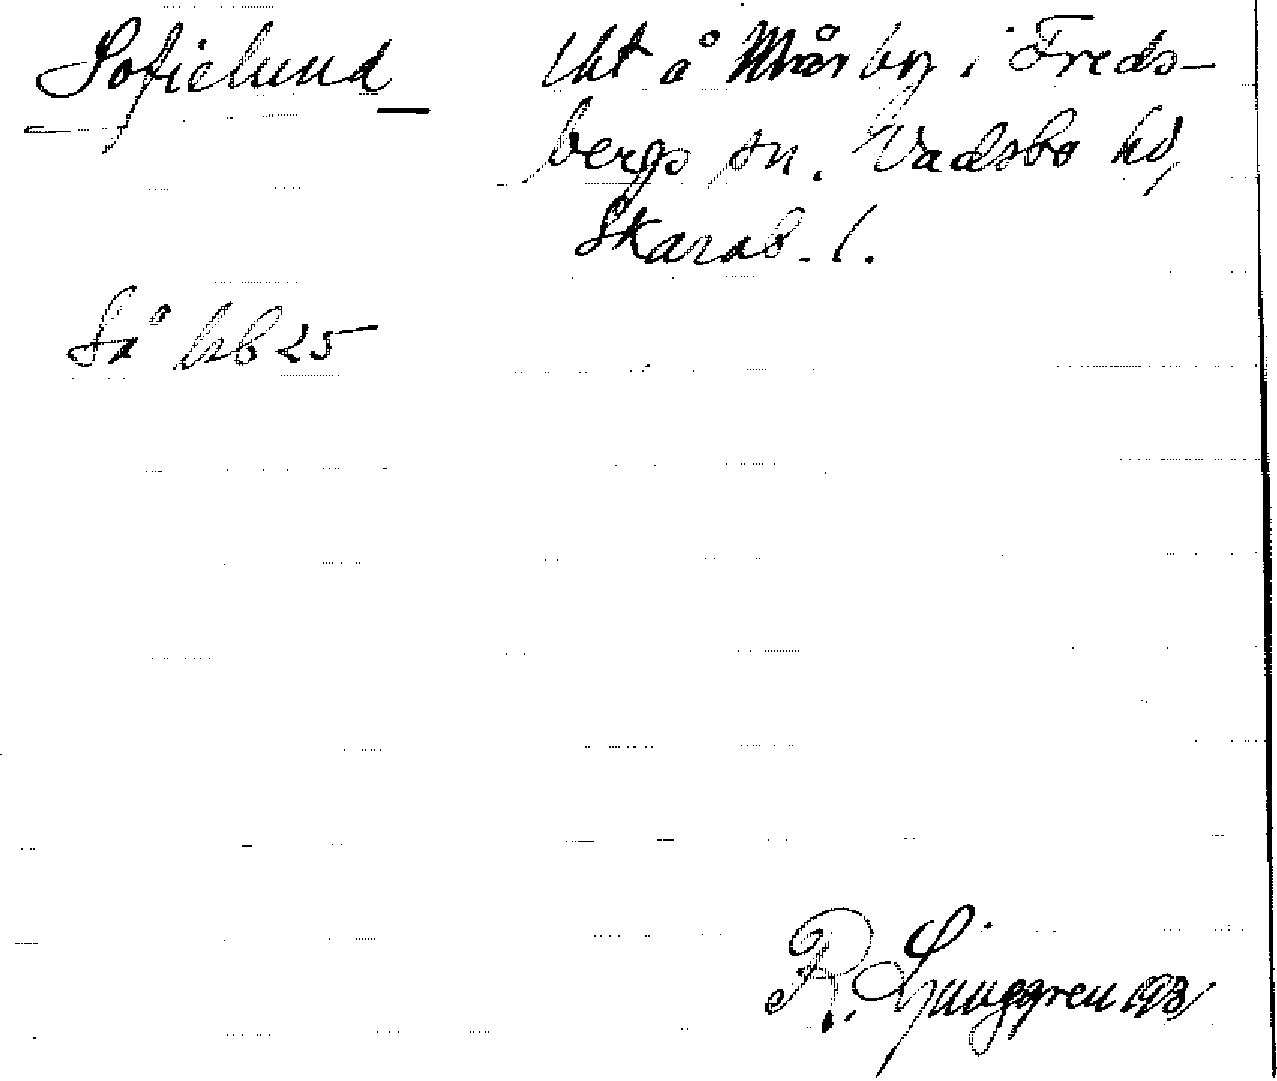 Sofielund
Uht å Mårby i Freds-
bergs sn. Vadsbo hd,
Skarab. l.
Så hb 25
R. Ljunggren